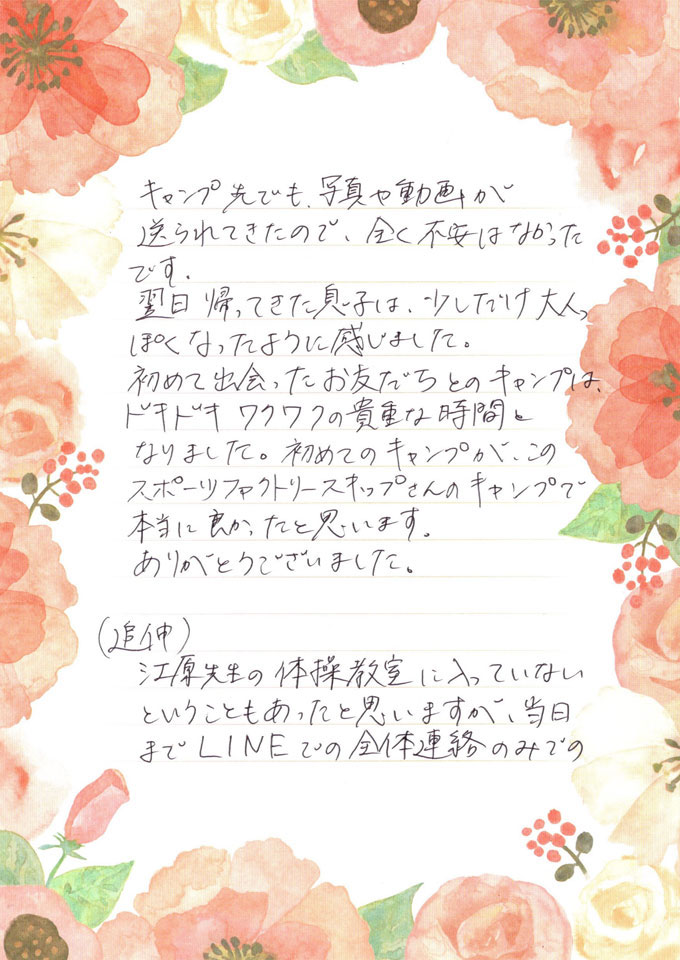 キャンプ先でも、写真や動画が
送られてきたので、全く不安はなかった
です。
翌日帰ってきた息子は、少しだけ大人っ
ぽくなったように感じました。
初めて出会ったお友だちとのキャンプは、
ドキドキワクワクの貴重な時間と
なりました。初めてのキャンプが、この
スポーツファクトリースキップさんのキャンプで
本当に良かったと思います。
ありがとうございました。
(追伸)
江原先生の体操教室に入っていない
ということもあったと思いますが、当日
までLINEでの全体連絡のみでの